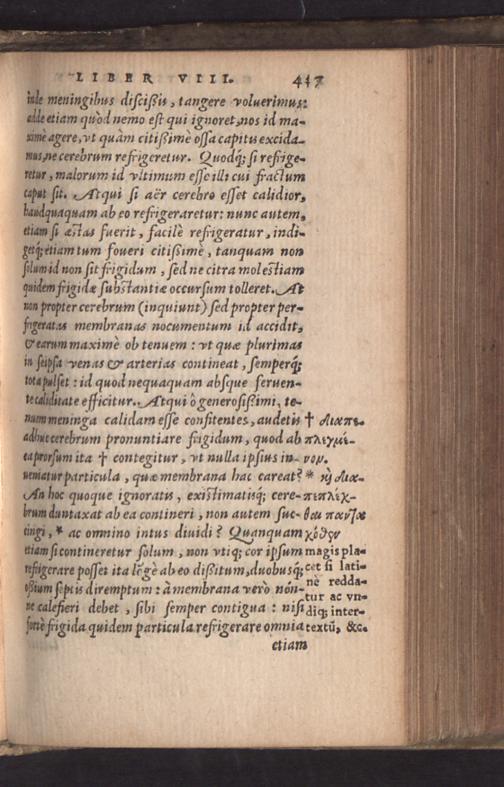 LIBER VIII. 417
inde meningibus discißis, tangere voluerimus:
adde etiam quòd nemo est qui ignoret, nos id ma-
ximè agere, vt quàm citißimè ossa capitis excida-
mus, ne cerebrum refrigeretur. Quodq́; si refrige-
retur, malorum id vltimum esse illi cui fractum
caput sit. Atqui si aër cerebro esset calidior,
haudquaquam ab eo refrigeraretur: nunc autem,
etiam si æstas fuerit, facilè refrigeratur, indi-
getq́; etiam tum foueri citißimè, tanquam non
solum id non sit frigidum, sed ne citra molestiam
quidem frigidæ substantiæ occursum tolleret. At
non propter cerebrum (inquiunt) sed propter per-
frigeratas membranas nocumentum id accidit,
& earum maximè ob tenuem: vt quæ plurimas
in seipsa venas & arterias contineat, semperq́;
tota pulset: id quod nequaquam absque feruen-
te caliditate efficitur. Atqui ô generosißimi, te-
nuem meninga calidam esse confitentes, audetis
adhuc cerebrum pronuntiare frigidum, quod ab
ea prorsum ita † contegitur, vt nulla ipsius in-
ueniatur particula, quæ membrana hac careat?
An hoc quoque ignoratis, existimatisq́; cere-
brum duntaxat ab ea contineri, non autem suc-
cingi, * ac omnino intus diuidi? Quanquam
etiam si contineretur solum, non vtiq; cor ipsum
refrigerare posset ita lõgè ab eo dißitum, duobusq́;
ossium septis diremptum: à membrana verò nón-
ne calefieri debet, sibi semper contigua: nisi
fortè frigida quidem particula refrigerare omnia
etiam
† διαπε-
πλεγμέ-
νον.
* ἢ δια-
πεπλέχ-
θαι παντὸς
magis pla-
cet si lati-
nè redda-
tur ac vn-
diq; inter-
textũ, &c.